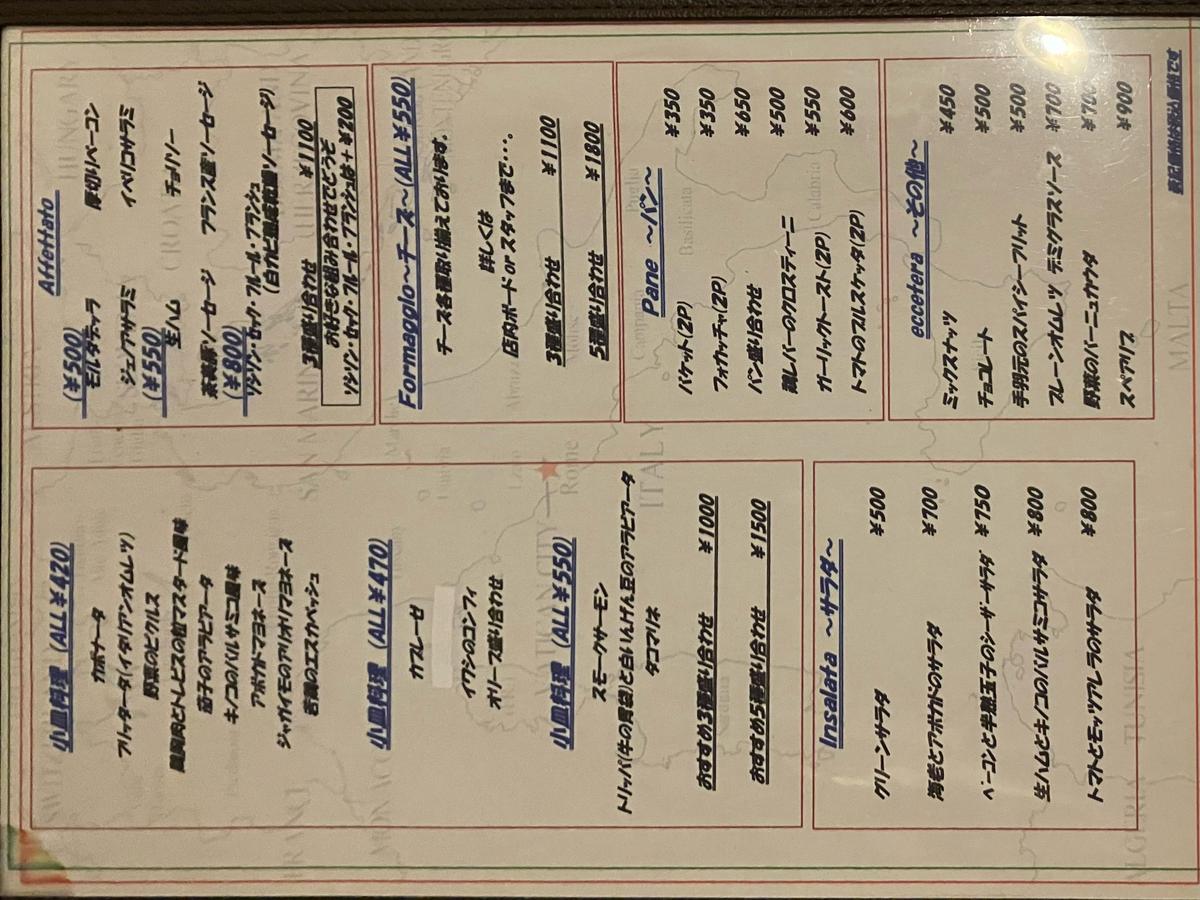 小皿料理 (ALL¥420)
カポナータ
フリッタータ(イタリアンオムレツ)
野菜のピクルス
鶏胸肉とトレビスの粒マスタード風味
茄子のアラビアータ
キノコのバルサミコ風味
アボカドマヨネーズ
ジャガイモのアリオリマヨネーズ
若鶏のエスカベッシュ
小皿料理 (ALL¥470)
カプレーゼ
イワシのコンフィ
オリーブ盛り合わせ
小皿料理 (ALL¥550)
スモークサーモン
トリッパ(牛の胃袋)と白いんげん豆のアラビアータ
タコマリネ
おすすめ3種盛り合わせ ¥1000
おすすめ5種盛り合わせ ¥1500
Insalata ~サラダ~
グリーンサラダ ¥500
海老とアボカドのサラダ ¥700
ベーコンと半熟玉子のシーザーサラダ ¥750
生ハムとキノコのバルサミコサラダ ¥800
トマトとモッツアレラのサラダ ¥800
Affettato
(¥500)
モルタデッラ 厚切りベーコン
ジェノアサラミ イベリコサラミ
(¥550)
生ハム チョリソー
茶美豚ソーセージ フランス産ソーセージ
(¥800)
ソシソン・セック・フルール・ブランシュ
(白カビ熟成乾燥ソーセージ)
3種盛り合わせ ¥1100
お好きな組み合わせでどうぞ
ソシソン・セック・フルール・ブランシュは+¥200
Formagglo~チーズ~(ALL¥550)
チーズ各種取り揃えております。
詳しくは
店内ボード or スタッフまで・・・。
3種盛り合わせ ¥1100
5種盛り合わせ ¥1800
Pane ~パン~
バケット(2P) ¥350
フォカッチャ(2P) ¥350
パン盛り合わせ ¥650
鶏レバーのクロスティーニ ¥500
ガーリックトースト(2P) ¥550
トマトのブルスケッタ(2P) ¥600
eccetera ~その他~
ミックスナッツ ¥450
チョコレート ¥500
手羽元のスパイシーフリット ¥500
プレーンオムレツ デミグラスソース ¥700
野菜のバーニュカウダ ¥700
スペアリブ ¥900
表記価格は税込価格です